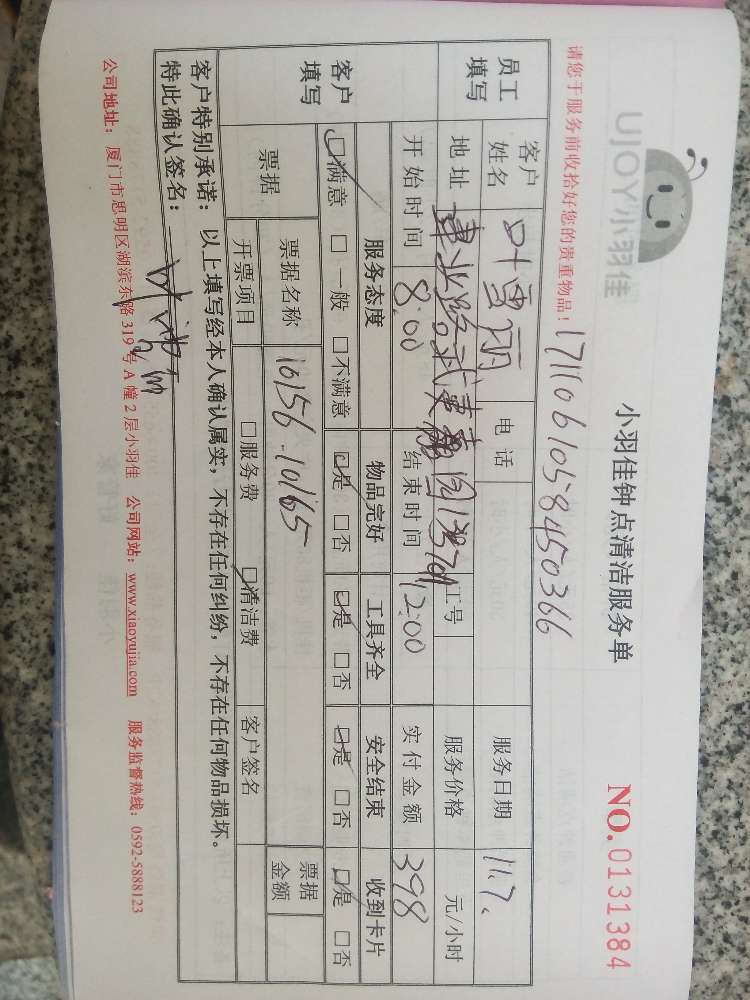 UJOY小羽佳
小羽佳钟点清洁服务单
NO.0131384
请您于服务前收拾好您的贵重物品！
1711061058450366
员工填写
客户姓名 叶雪丽 电话 服务日期 11.7.
地址 工号 服务价格 元/小时
开始时间 8:00 结束时间 12:00 实付金额 398
客户填写
服务态度 物品完好 工具齐全 安全结束 收到卡片
☑满意 □一般 □不满意 ☑是 □否 ☑是 □否 ☑是 □否 ☑是 □否
票据 票据名称 10156-10165 票据金额
开票项目 □服务费 ☑清洁费 客户签名
客户特别承诺：以上填写经本人确认属实，不存在任何纠纷，不存在任何物品损坏。
特此确认签名：
公司地址：厦门市思明区湖滨东路319号A幢2层小羽佳 公司网站：www.xiaoyujia.com 服务监督热线：0592-5888123